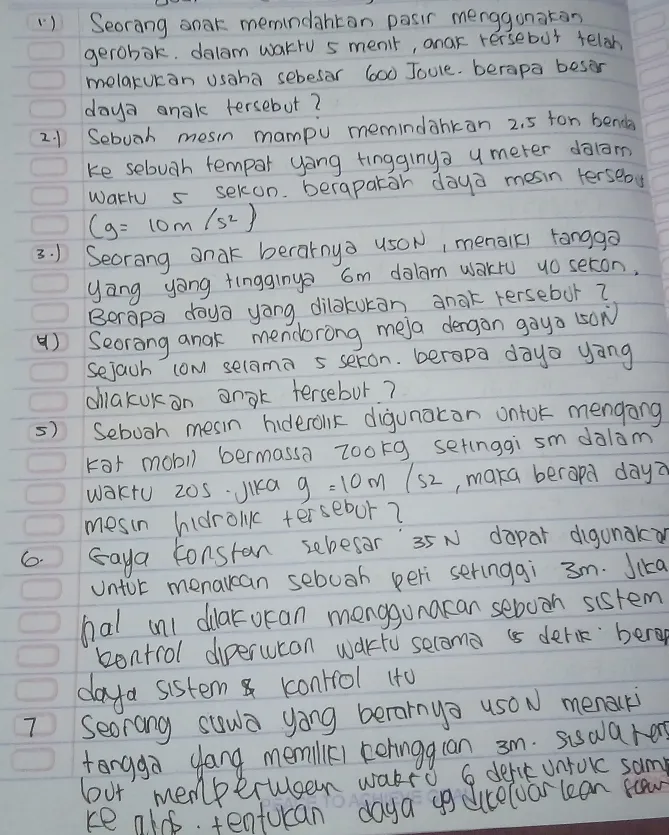 1.) Seorang anak memindahkan pasir menggunakan
gerobak. dalam waktu 5 menit, anak tersebut telah
melakukan usaha sebesar 600 Joule. berapa besar
daya anak tersebut?
2.) Sebuah mesin mampu memindahkan 2,5 ton benda
ke sebuah tempat yang tingginya 4 meter dalam
waktu 5 sekon. berapakah daya mesin tersebu
(g= 10 m/s2)
3.) Seorang anak beratnya 450N, menaiki tangga
yang yang tingginya 6m dalam waktu 40 sekon.
Berapa daya yang dilakukan anak tersebut?
4) Seorang anak mendorong meja dengan gaya 150N
sejauh 10M selama 5 sekon. berapa daya yang
dilakukan anak tersebut?
5) Sebuah mesin hiderolik digunakan untuk mengang
kat mobil bermassa 700kg setinggi 5m dalam
waktu 20s. Jika g =10m/s2, maka berapa daya
mesin hidrolik tersebut?
6. Gaya konstan sebesar 35 N dapat digunakan
untuk menaikan sebuah peti setinggi 3m. Jika
hal ini dilakukan menggunakan sebuah sistem
kontrol diperlukan waktu selama detik. berap
daya sistem & kontrol itu
7 Seorang siswa yang beratnya 450N menaiki
tangga yang memiliki ketinggian 3m. siswa ters
but memperlukan waktu 6 detik untuk samp
ke atas. tentukan daya yg dikeluarkan